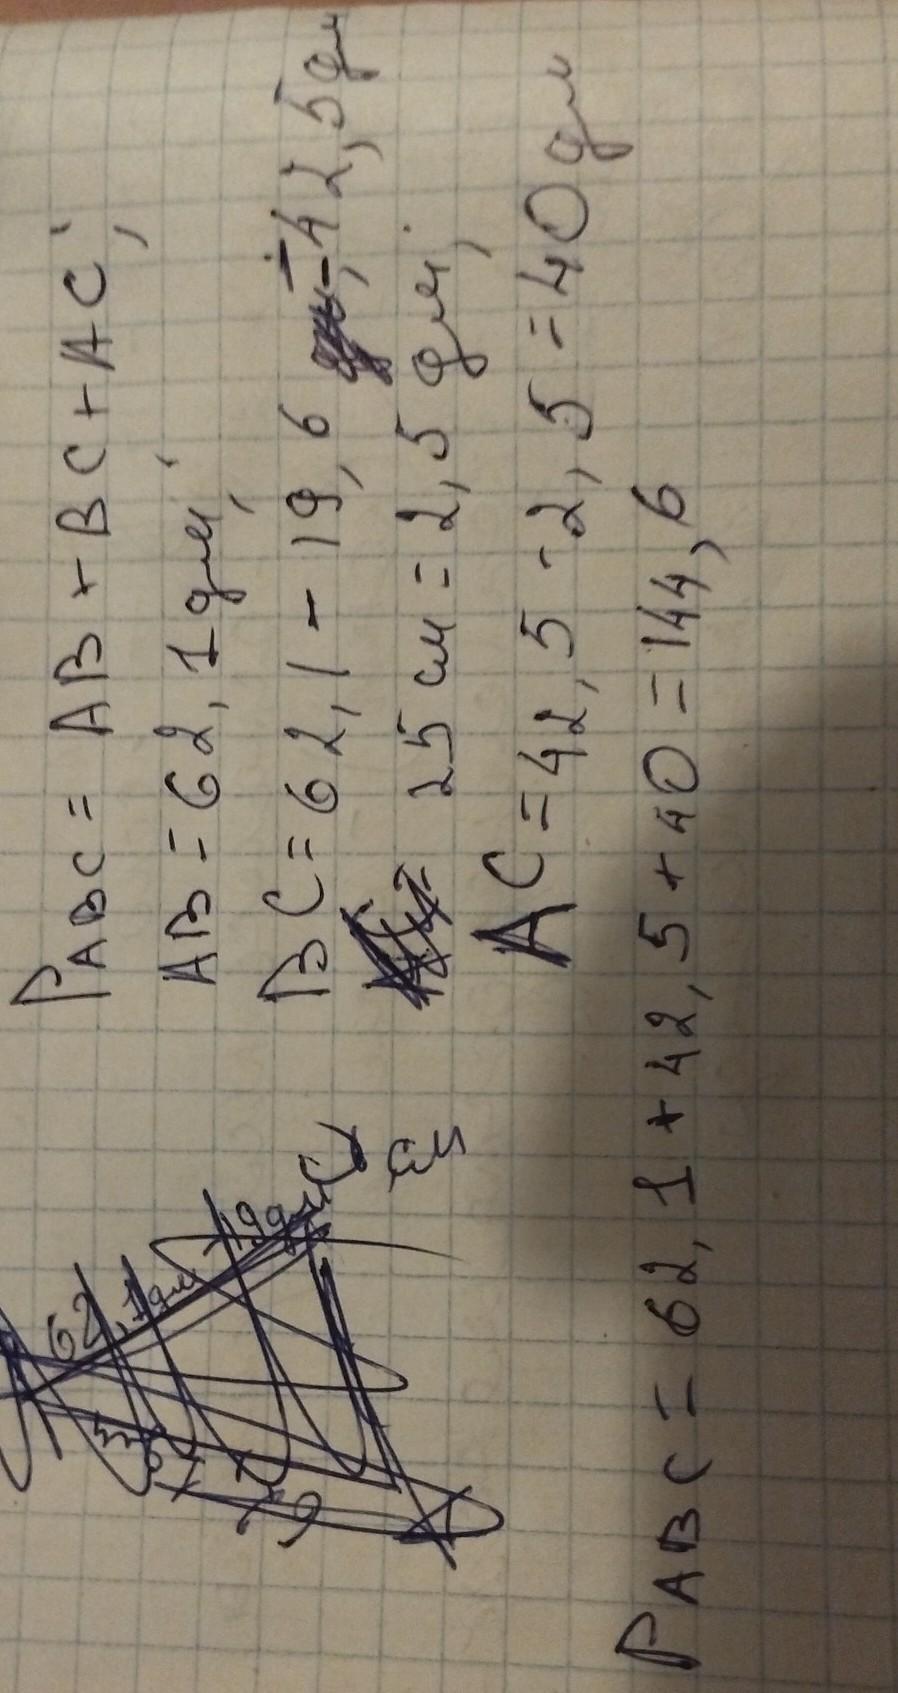 P ABC = AB + BC + AC;
AB = 62,1 дм;
BC = 62,1 - 19,6 = 42,5 дм
25 см = 2,5 дм;
AC = 42,5 - 2,5 = 40 дм
62,1 дм
C
см
P ABC = 62,1 + 42,5 + 40 = 144,6